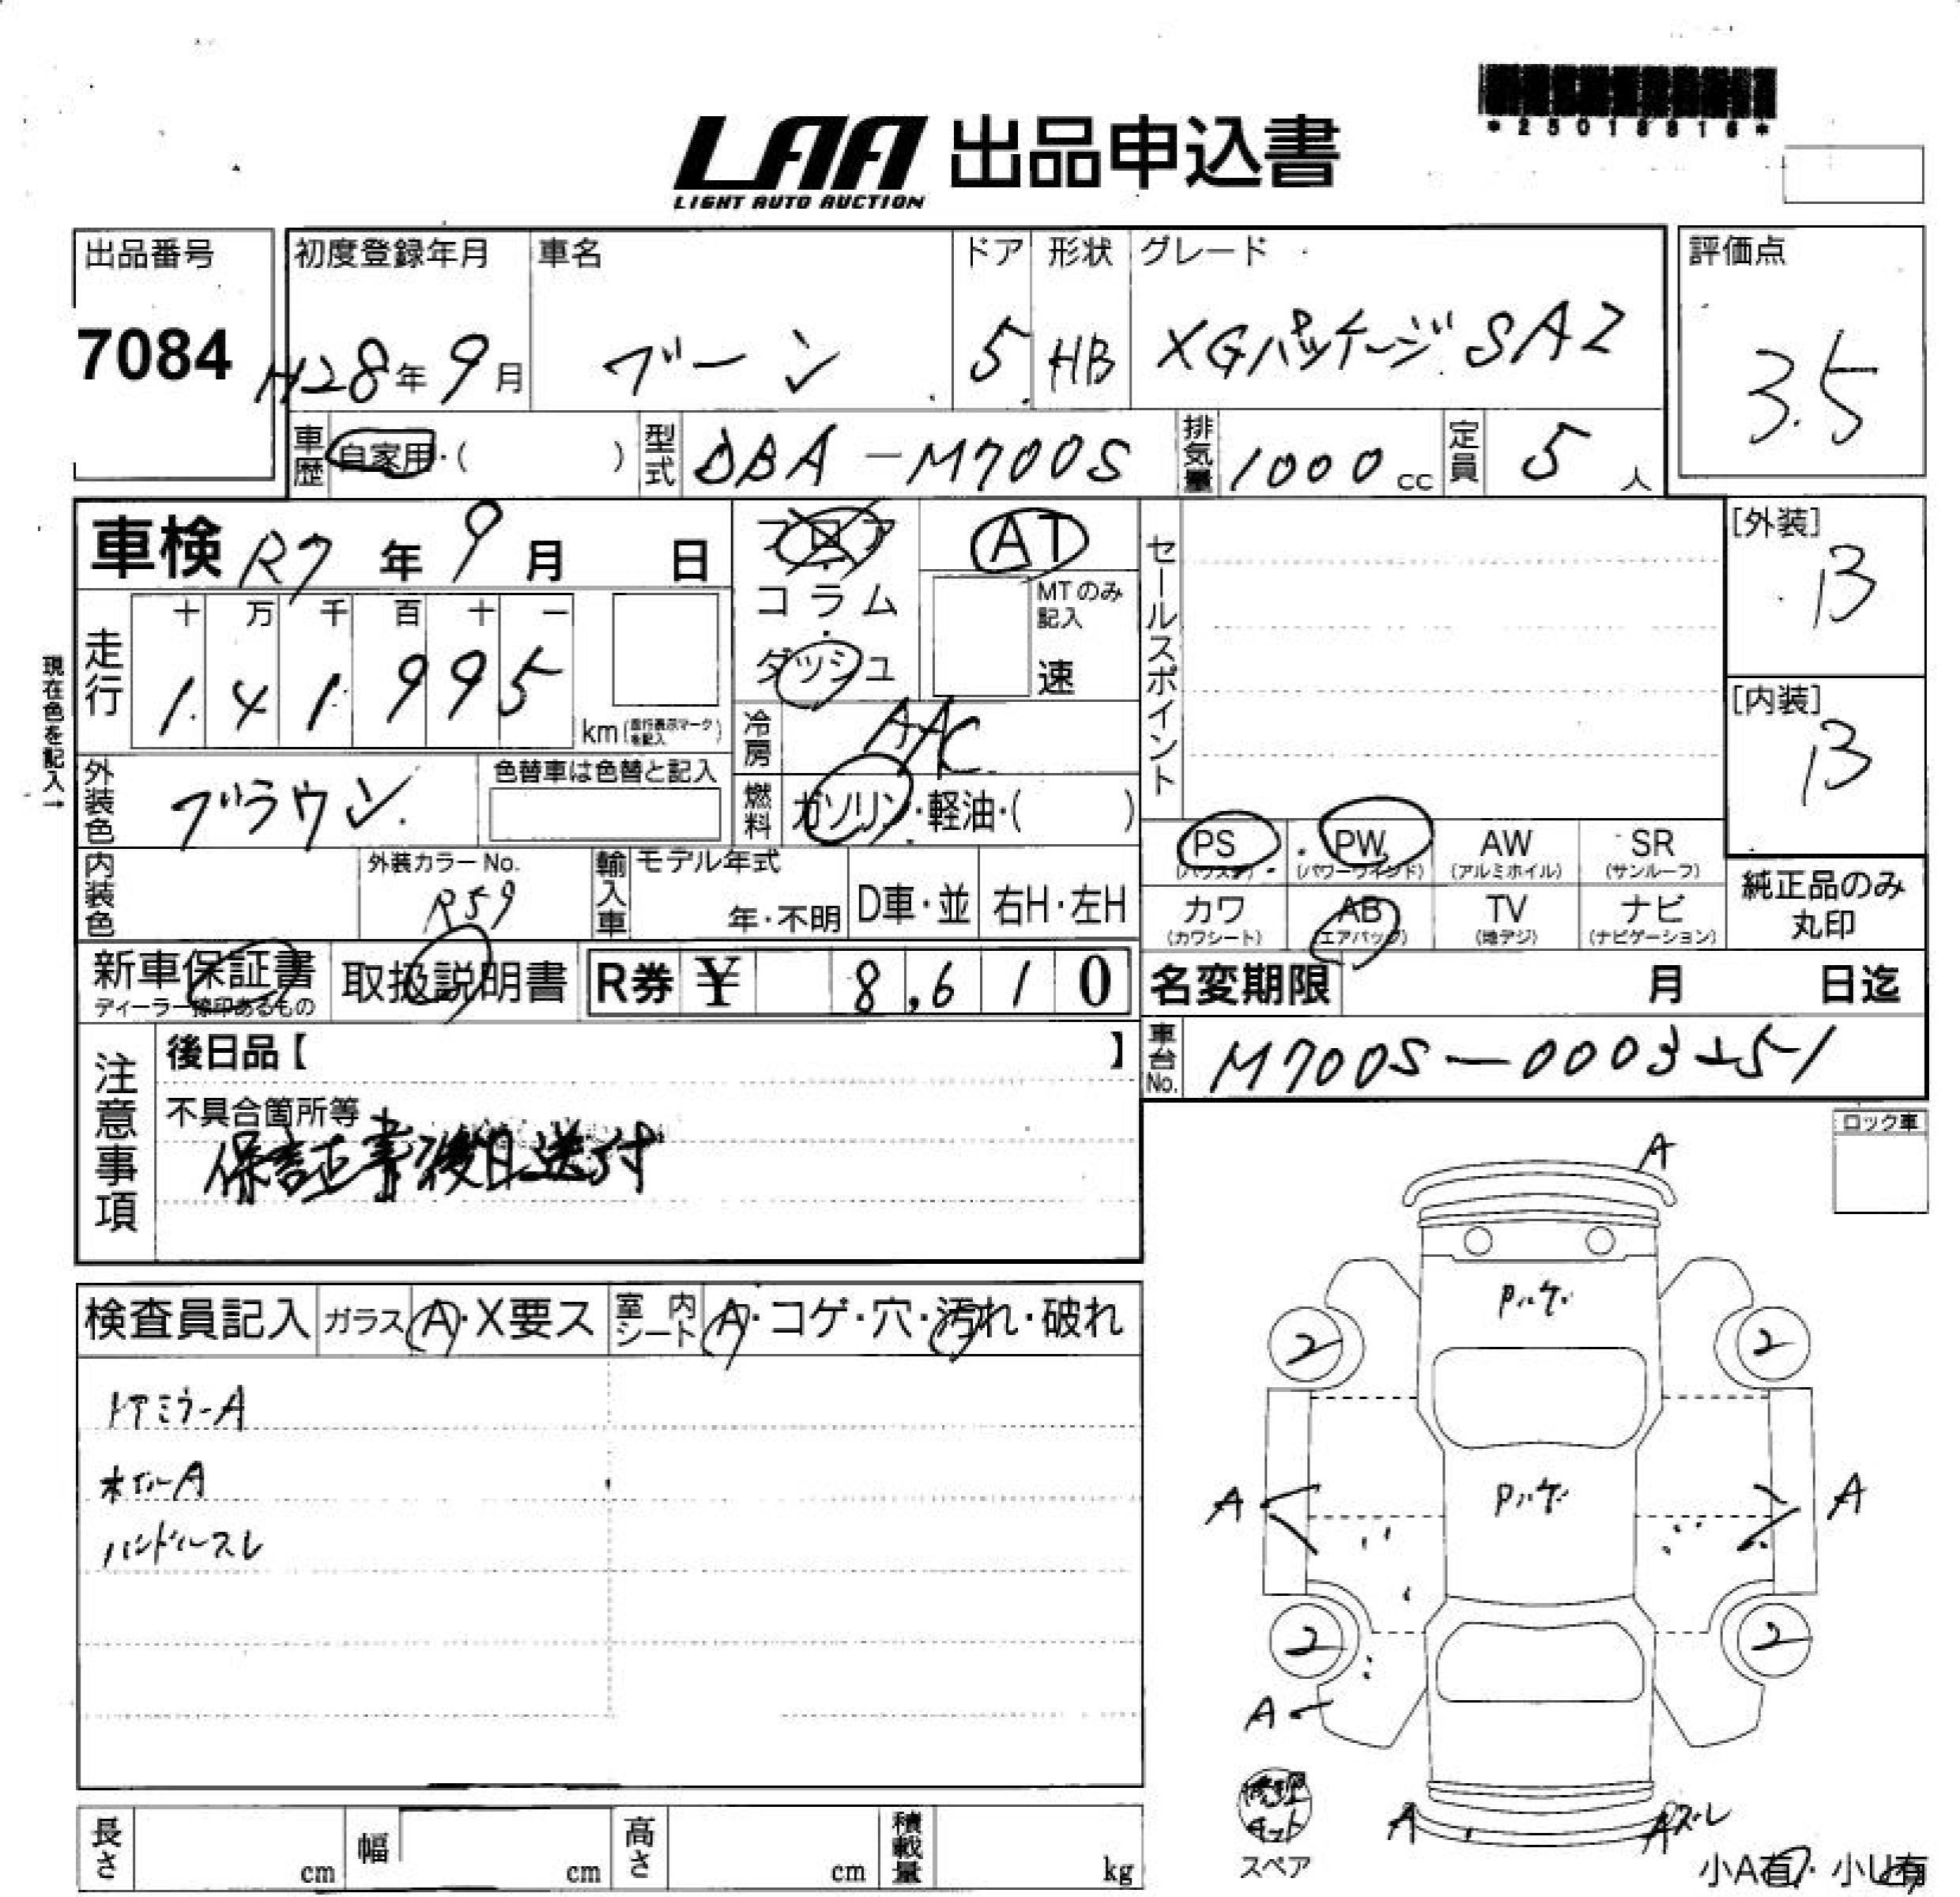 *25018816*
LAA 出品申込書
LIGHT AUTO AUCTION
出品番号 初度登録年月 車名 ドア 形状 グレード 評価点
7084 H28年9月 ブーン 5 HB XGパッケージSA2 3.5
車歴 自家用・( ) 型式 DBA-M700S 排気量 1000cc 定員 5人
車検 R7年9月 日 フロア AT セールスポイント [外装] B
コラム MTのみ記入 速
ダッシュ
現在色を記入→
走行 十 万 千 百 十 一
1.41995 km(走行表示マークを記入) [内装] B
冷房 AAC
外装色 ブラウン 色替車は色替と記入 燃料 ガソリン・軽油・( )
PS (パワステ) PW (パワーウインド) AW (アルミホイル) SR (サンルーフ)
内装色 外装カラーNo. R59 輸入車 モデル年式 年・不明 D車・並 右H・左H
カワ (カワシート) AB (エアバック) TV (地デジ) ナビ (ナビゲーション) 純正品のみ丸印
新車保証書 ディーラー捺印あるもの 取扱説明書 R券 ¥ 8,610 名変期限 月 日迄
注意事項 後日品【 】 車台No. M700S-0003
不具合箇所等
保証書後日送付
ロック車
A
検査員記入 ガラス A・X要ス 室内シート A・コゲ・穴・汚れ・破れ
Pハゲ
2 2
ドアミラーA
ホイルA
ハンドルスレ
A Pハゲ A
2 2
A
修理キット
スペア
A Aズレ
小A有・小U有
長さ cm 幅 cm 高さ cm 積載量 kg